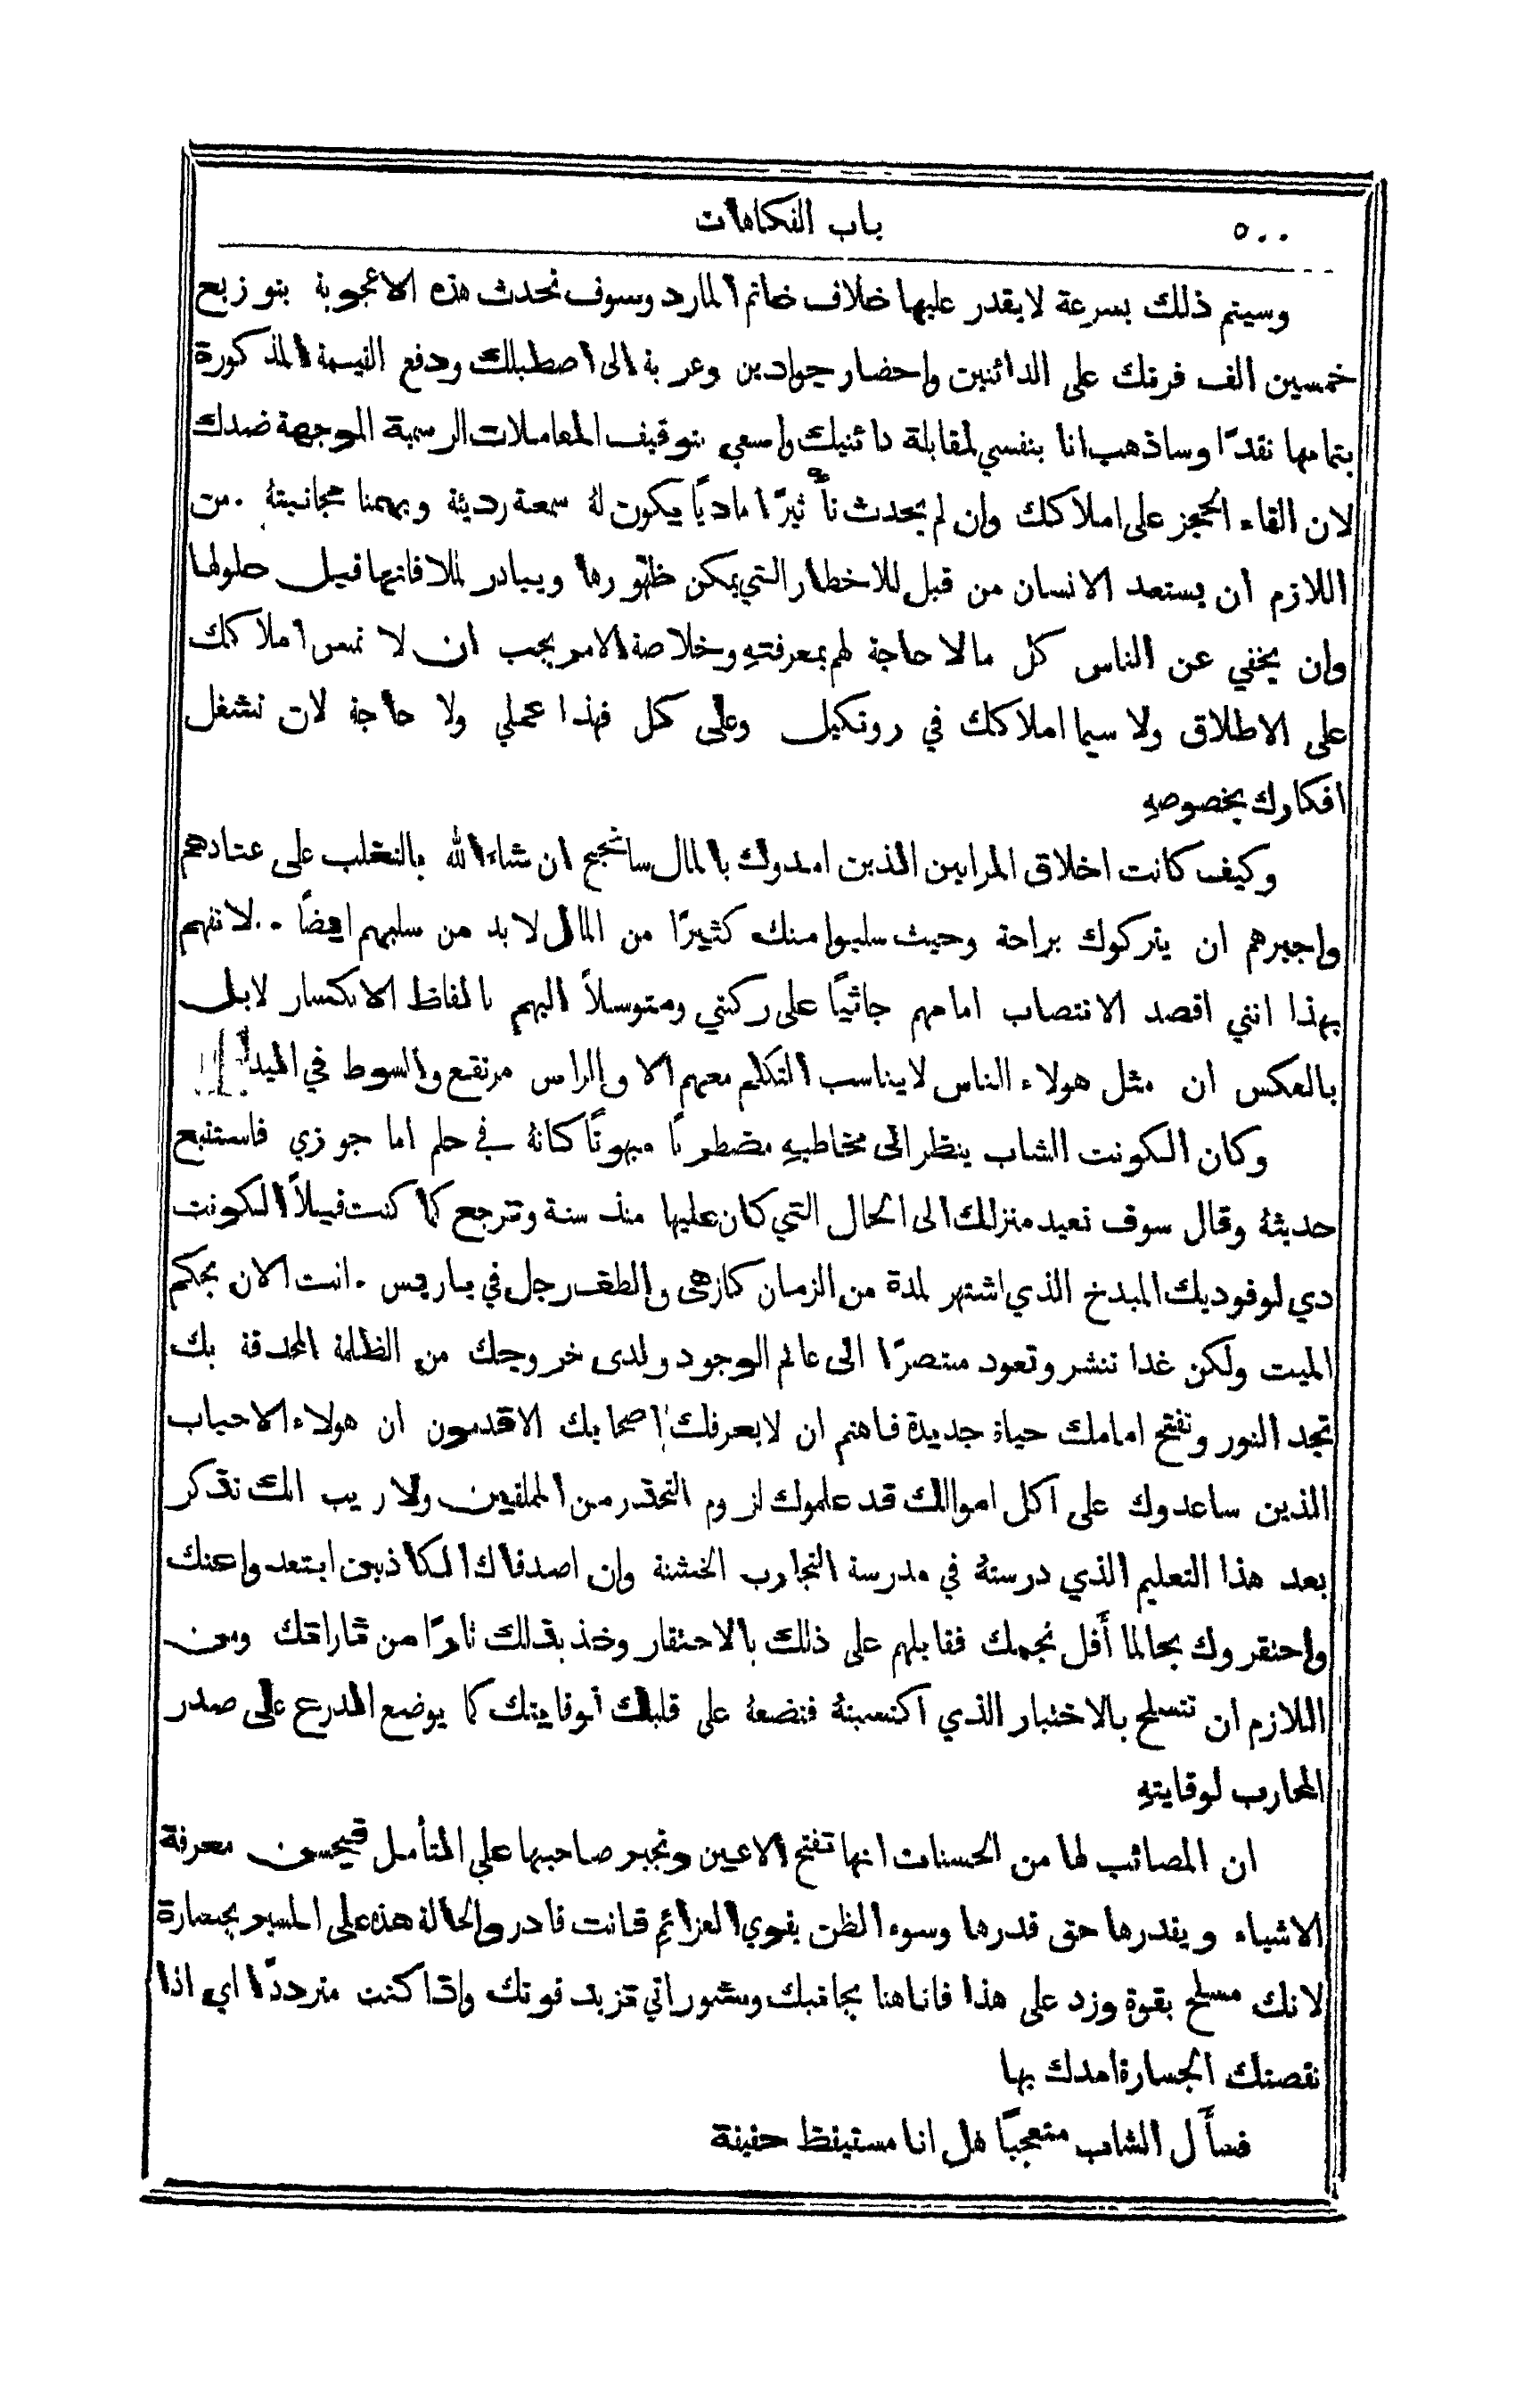 ٥٠٠ باب الفكاهات
وسيتم ذلك بسرعة لا يقدر عليها خلاف خاتم المارد وسوف تحدث هذه الاعجوبة بتوزيع
خمسين الف فرنك على الدائنين واحضار جوادين وعربة الى اصطبلك ودفع القيمة المذكورة
بتمامها نقدًا وساذهب انا بنفسي لمقابلة دائنيك واسعى بتوقيف المعاملات الرسمية الموجهة ضدك
لان القاء الحجز على املاكك وان لم يحدث تأثيرًا ماديًا يكون لهُ سمعة رديئة ويهمنا مجانبتهُ . من
اللازم ان يستعد الانسان من قبل للاخطار التي يمكن ظهورها ويبادر لملافاتها قبل حلولها
وان يخفي عن الناس كل ما لا حاجة لهم بمعرفتهِ وخلاصة الامر يجب ان لا تمس املاكك
على الاطلاق ولا سيما املاكك في روتكيل وعلى كل فهذا عملي ولا حاجة لان تشغل
افكارك بخصوصهِ
وكيف كانت اخلاق المرابين الذين امدوك بالمال سانجح ان شاء الله بالتغلب على عنادهم
واجبرهم ان يتركوك براحة وحيث سلبوا منك كثيرًا من المال لا بد من سلبهم ايضًا . . لا تفهم
بهذا انني اقصد الانتصاب امامهم جاثيًا على ركبتي ومتوسلاً اليهم بالفاظ الانكسار لا بل
بالعكس ان مثل هولاء الناس لا يناسب التكلم معهم الا والراس مرتفع والسوط في اليد
وكان الكونت الشاب ينظر الى مخاطبهِ مضطربًا مبهوتًا كانهُ في حلم اما جوزي فاستتبع
حديثهُ وقال سوف نعيد منزلك الى الحال التي كان عليها منذ سنة وترجع كما كنت قبلاً الكونت
دي لوفوديك المبذخ الذي اشتهر لمدة من الزمان كازهى والطف رجل في باريس . انت الان بحكم
الميت ولكن غدا تنشر وتعود منتصرًا الى عالم الوجود ولدى خروجك من الظلمة المحدقة بك
تجد النور وتفتح امامك حياة جديدة فاهتم ان لا يعرفك اصحابك الاقدمون ان هولاء الاحباب
الذين ساعدوك على اكل اموالك قد علموك لزوم التحذر من الملقين ولا ريب انك تذكر
بعد هذا التعليم الذي درستهُ في مدرسة التجارب الخشنة وان اصدقاك الكاذبين ابتعدوا عنك
واحتقروك بحالما أَفل نجمك فقابلهم على ذلك بالاحتقار وخذ بذلك ثارًا من ثاراتك ومن
اللازم ان تتسلح بالاختبار الذي اكتسبتهُ فتضعهُ على قلبك لوقايتك كما يوضع الدرع على صدر
المحارب لوقايتهِ
ان المصائب لها من الحسنات انها تفتح الاعين وتجبر صاحبها على المتأمل فيحسن معرفة
الاشياء ويقدرها حق قدرها وسوء الظن يقوي العزائم فانت قادر والحالة هذه على المسير بجسارة
لانك مسلح بقوة وزد على هذا فانا هنا بجانبك ومشوراتي تزيد قوتك واذا كنت مترددًا اي اذا
نقصتك الجسارة امدك بها
فسأَل الشاب متعجبًا هل انا مستيقظ حقيقة